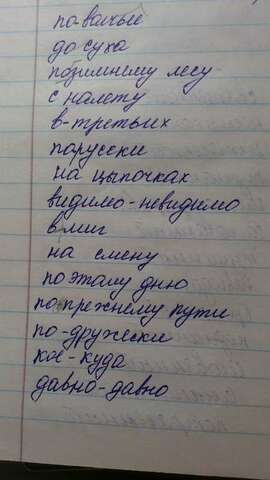 по-волчьи
до суха
по зимнему лесу
с налету
в-третьих
парусски
на цыпочках
видимо-невидимо
в миг
на смену
по этому дню
по прежнему пути
по-дружески
кое-куда
давно-давно